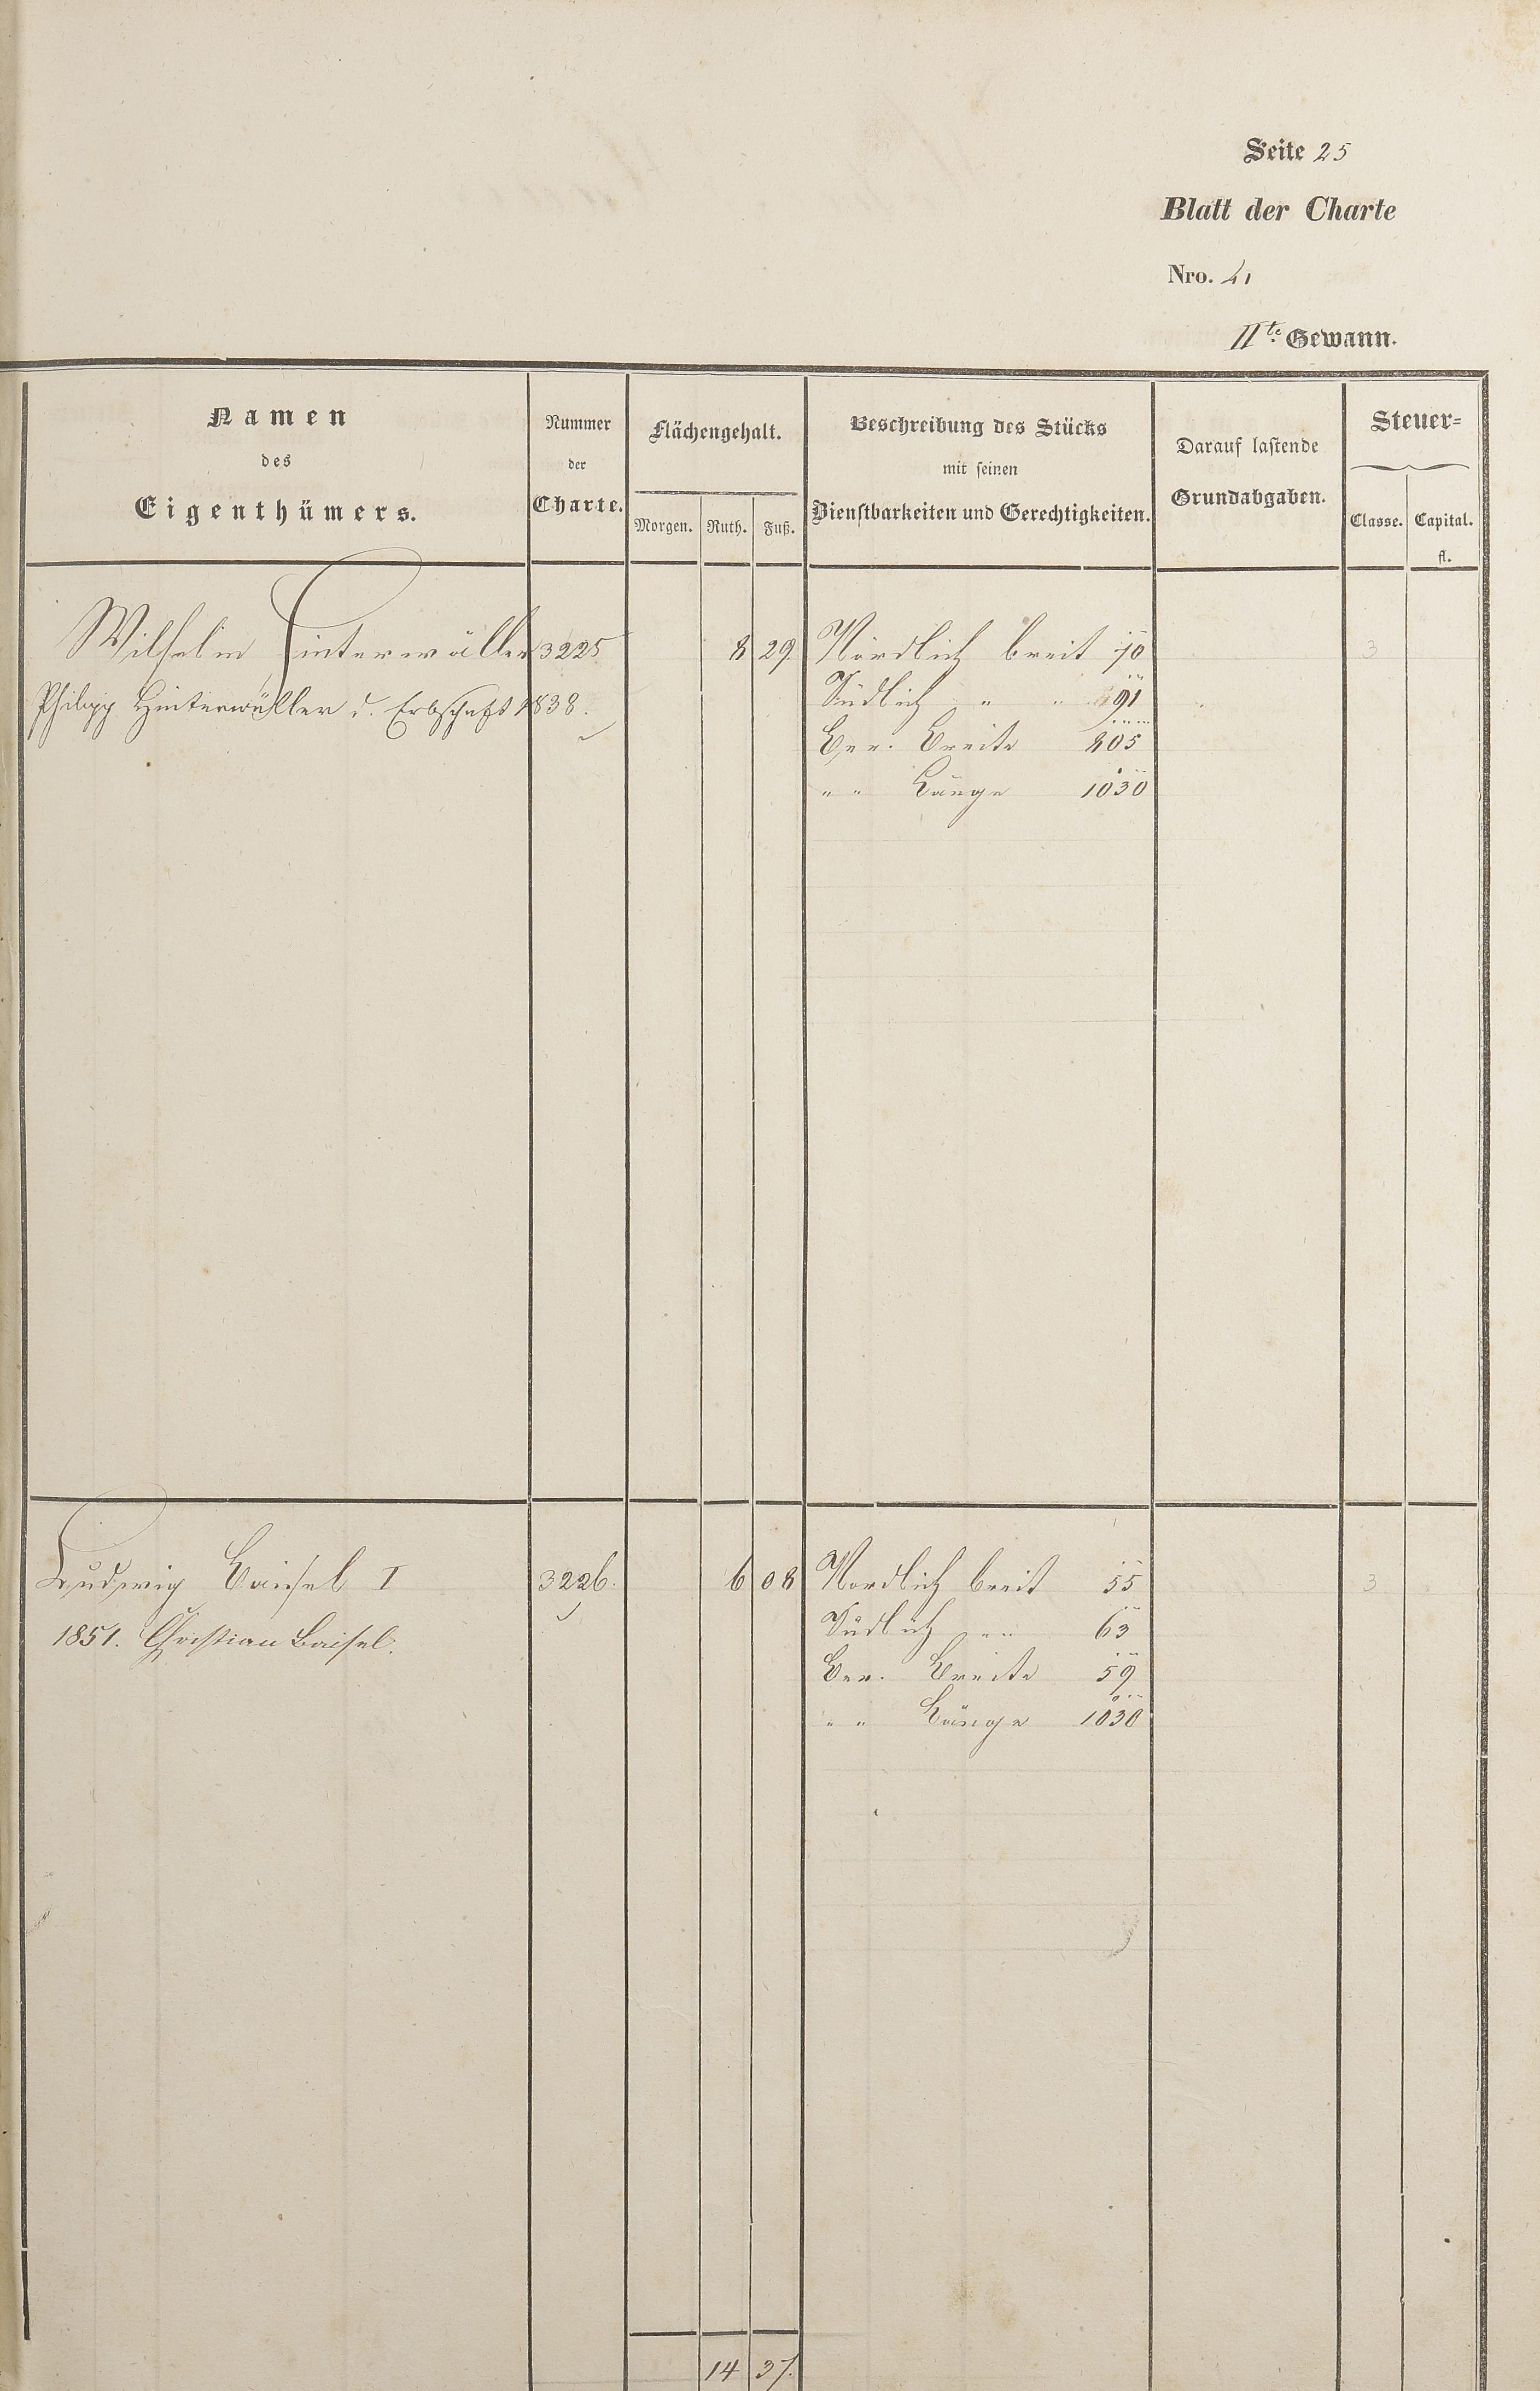 Seite 25
Blatt der Charte
Nro. 41
IIte Gewann.
Namen
des
Eigenthümers.
Nummer
der
Charte.
Flächengehalt.
Morgen. Ruth. Fuß.
Beschreibung des Stücks
mit seinen
Dienstbarkeiten und Gerechtigkeiten.
Darauf lastende
Grundabgaben.
Steuer=
Classe. Capital.
fl.
Wilhelm Hinterwäller 3225 8 29 Nördlich breit 70 3
Philipp Hinterwäller d. Erbschaft 1838. Südlich " " 91
Ber. Breite 805
" " Länge 1030
Ludwig Baisel I 3226. 6 08 Nordlich breit 55 3
1851. Christian Baisel. Südlich " " 63
Ber. Breite 59
" " Länge 1030
14 37.